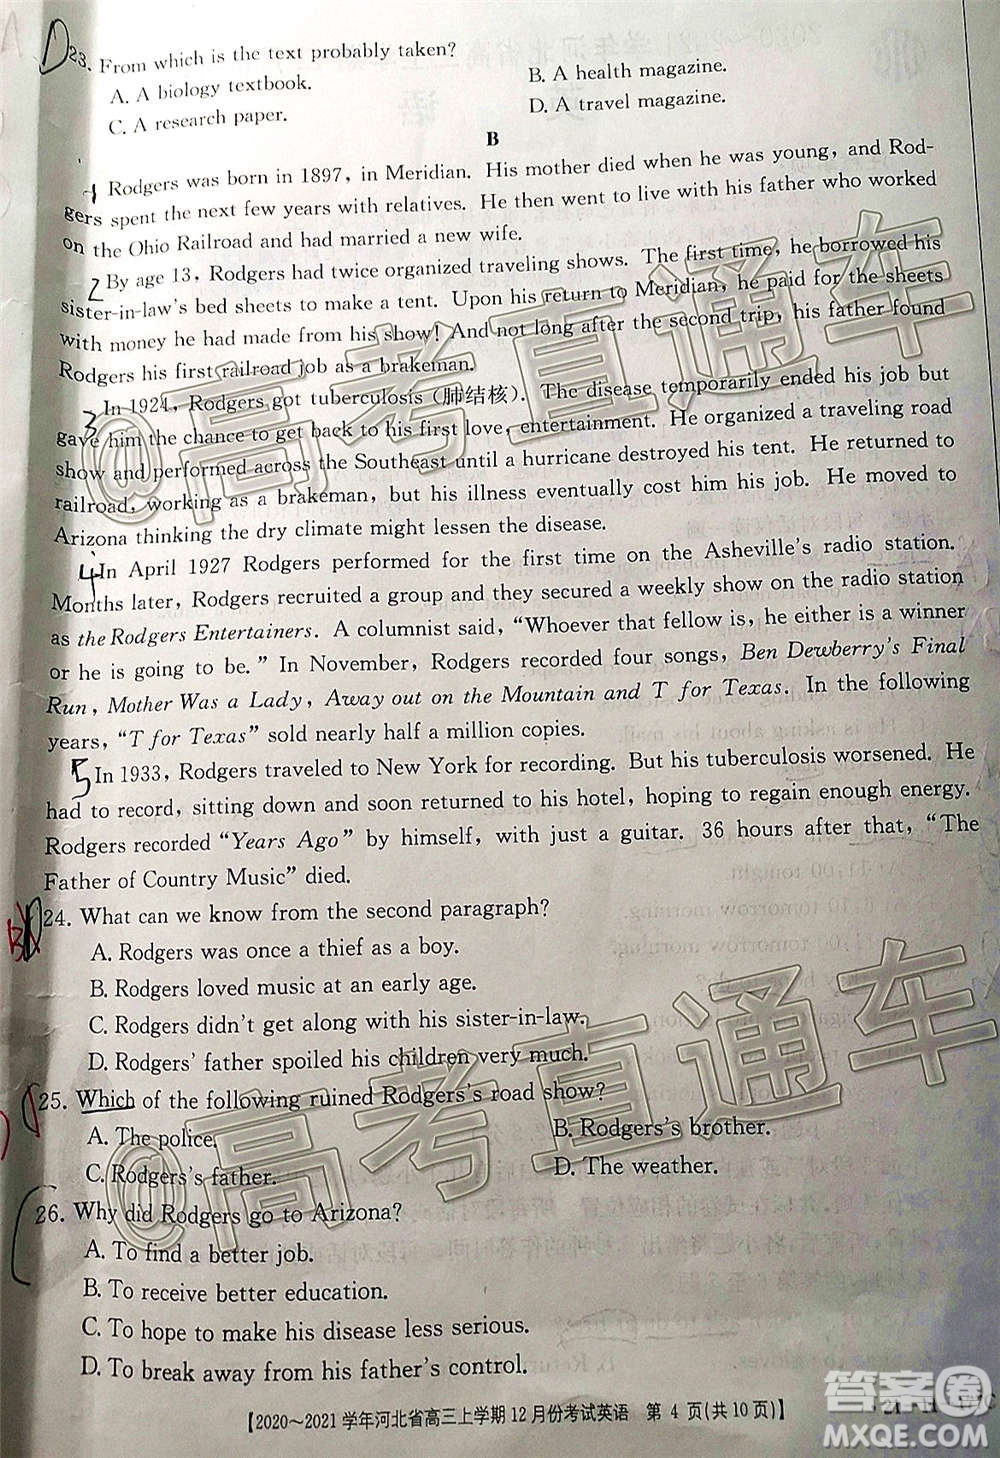 D23. From which is the text probably taken?
A. A biology textbook. B. A health magazine.
C. A research paper. D. A travel magazine.
B
1 Rodgers was born in 1897, in Meridian. His mother died when he was young, and Rod-
gers spent the next few years with relatives. He then went to live with his father who worked
on the Ohio Railroad and had married a new wife.
2 By age 13, Rodgers had twice organized traveling shows. The first time, he borrowed his
sister-in-law's bed sheets to make a tent. Upon his return to Meridian, he paid for the sheets
with money he had made from his show! And not long after the second trip, his father found
Rodgers his first railroad job as a brakeman.
3 In 1924, Rodgers got tuberculosis (肺结核). The disease temporarily ended his job but
gave him the chance to get back to his first love, entertainment. He organized a traveling road
show and performed across the Southeast until a hurricane destroyed his tent. He returned to
railroad, working as a brakeman, but his illness eventually cost him his job. He moved to
Arizona thinking the dry climate might lessen the disease.
4 In April 1927 Rodgers performed for the first time on the Asheville's radio station.
Months later, Rodgers recruited a group and they secured a weekly show on the radio station
as the Rodgers Entertainers. A columnist said, "Whoever that fellow is, he either is a winner
or he is going to be." In November, Rodgers recorded four songs, Ben Dewberry's Final
Run, Mother Was a Lady, Away out on the Mountain and T for Texas. In the following
years, "T for Texas" sold nearly half a million copies.
5 In 1933, Rodgers traveled to New York for recording. But his tuberculosis worsened. He
had to record, sitting down and soon returned to his hotel, hoping to regain enough energy.
Rodgers recorded "Years Ago" by himself, with just a guitar. 36 hours after that, "The
Father of Country Music" died.
B 24. What can we know from the second paragraph?
A. Rodgers was once a thief as a boy.
B. Rodgers loved music at an early age.
C. Rodgers didn't get along with his sister-in-law.
D. Rodgers' father spoiled his children very much.
25. Which of the following ruined Rodgers's road show?
A. The police. B. Rodgers's brother.
C. Rodgers's father. D. The weather.
26. Why did Rodgers go to Arizona?
A. To find a better job.
B. To receive better education.
C. To hope to make his disease less serious.
D. To break away from his father's control.
【2020～2021学年河北省高三上学期12月份考试英语 第 4 页(共10页)】
@高考直通车
@高考直通车
答案圈
MXQE.COM